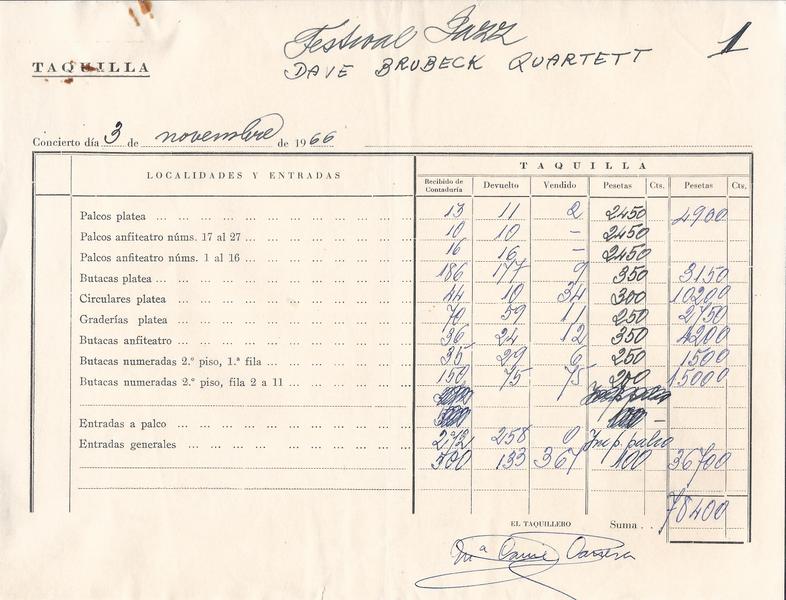 Festival Jazz 1
TAQUILLA
DAVE BRUBECK QUARTETT
Concierto día 3 de novembre de 1966
LOCALIDADES Y ENTRADAS TAQUILLA
Recibido de Contaduría Devuelto Vendido Pesetas Cts. Pesetas Cts.
Palcos platea 13 11 2 2450 4900
Palcos anfiteatro núms. 17 al 27 10 10 - 2450
Palcos anfiteatro núms. 1 al 16 16 16 - 2450
Butacas platea 186 177 9 350 3150
Circulares platea 44 10 34 300 10200
Graderías platea 70 59 11 250 2750
Butacas anfiteatro 36 24 12 350 4200
Butacas numeradas 2.º piso, 1.ª fila 35 29 6 250 1500
Butacas numeradas 2.º piso, fila 2 a 11 150 75 75 200 15000
Entradas a palco
Entradas generales 258 0 Imp. palco
500 133 367 100 36700
EL TAQUILLERO Suma . . 78400
Mª